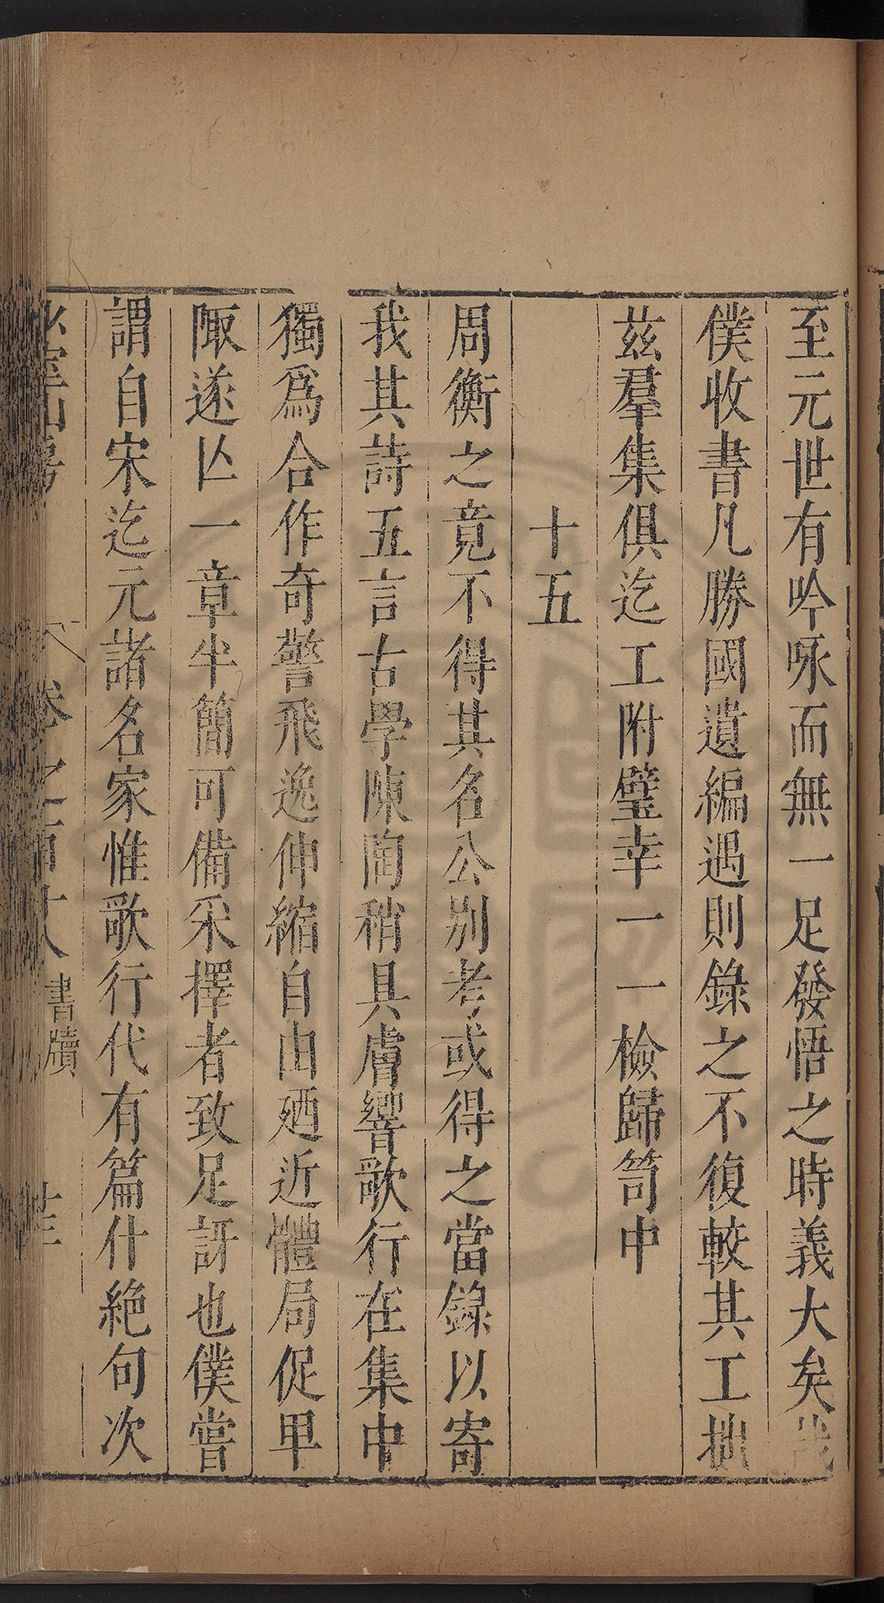 至元世有吟咏而無一足發悟之時義大矣哉
僕收書凡勝國遺編遇則錄之不復較其工拙
茲羣集俱迄工附璧幸一一檢歸笥中
十五
周衡之竟不得其名公别考或得之當錄以寄
我其詩五言古學陳陶稍具膚響歌行在集中
獨爲合作奇警飛逸伸縮自由廼近體局促卑
陋遂亾一章半簡可備采擇者致足訝也僕嘗
謂自宋迄元諸名家惟歌行代有篇什絶句次
山房 卷之 書牘